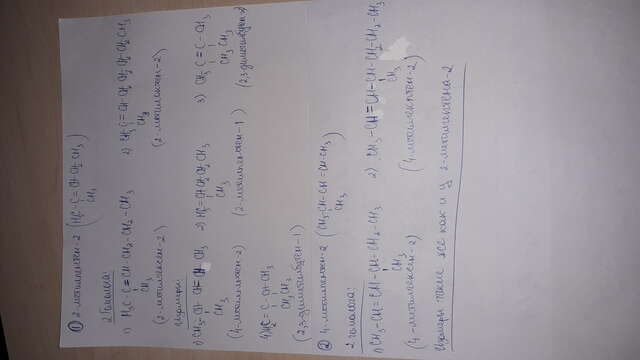 ① 2-метилпентен-2 (H₃C-C=CH-CH₂CH₃)
CH₃
2 Гомолога:
1) H₃C-C=CH-CH₂-CH₂-CH₃
CH₃
(2-метилгексен-2)
2) CH₃C=CH CH₂ CH₂ CH₂ CH₂ CH₃
CH₃
(2-метилоктен-2)
Изомеры:
1) CH₃-CH CH=CH CH₃
CH₃
(4-метилпентен-2)
2) H₂C=CCH₂CH₂CH₃
CH₃
(2-метилпентен-1)
3) CH₃-C=C-CH₃
CH₃ CH₃
(2,3-диметилбутен-2)
4) H₂C=C-CH-CH₃
CH₃CH₃
(2,3-диметилбутен-1)
② 4-метилпентен-2 (CH₃-CH-CH=CH-CH₃)
CH₃
2 гомолога:
1) CH₃-CH=CH-CH-CH₂-CH₃
CH₃
(4-метилгексен-2)
2) CH₃-CH=CH-CH-CH₂-CH₂-CH₃
CH₃
(4-метилгептен-2)
Изомеры такие же как и у 2-метилпентена-2